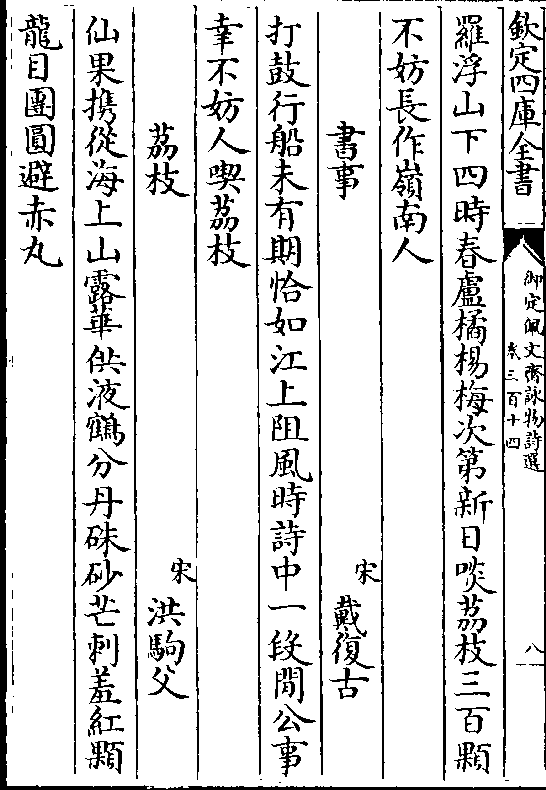 欽定四庫全書
御定佩文齋詠物詩選
卷三百十四
八
羅浮山下四時春盧橘楊梅次第新日啖荔枝三百顆
不妨長作嶺南人
書事
宋
戴復古
打鼓行船未有期恰如江上阻風時詩中一段閒公事
幸不妨人喫荔枝
荔枝
宋
洪駒父
仙果携從海上山露華供液鶴分丹硃砂芒刺羞紅顆
龍目團圓避赤丸